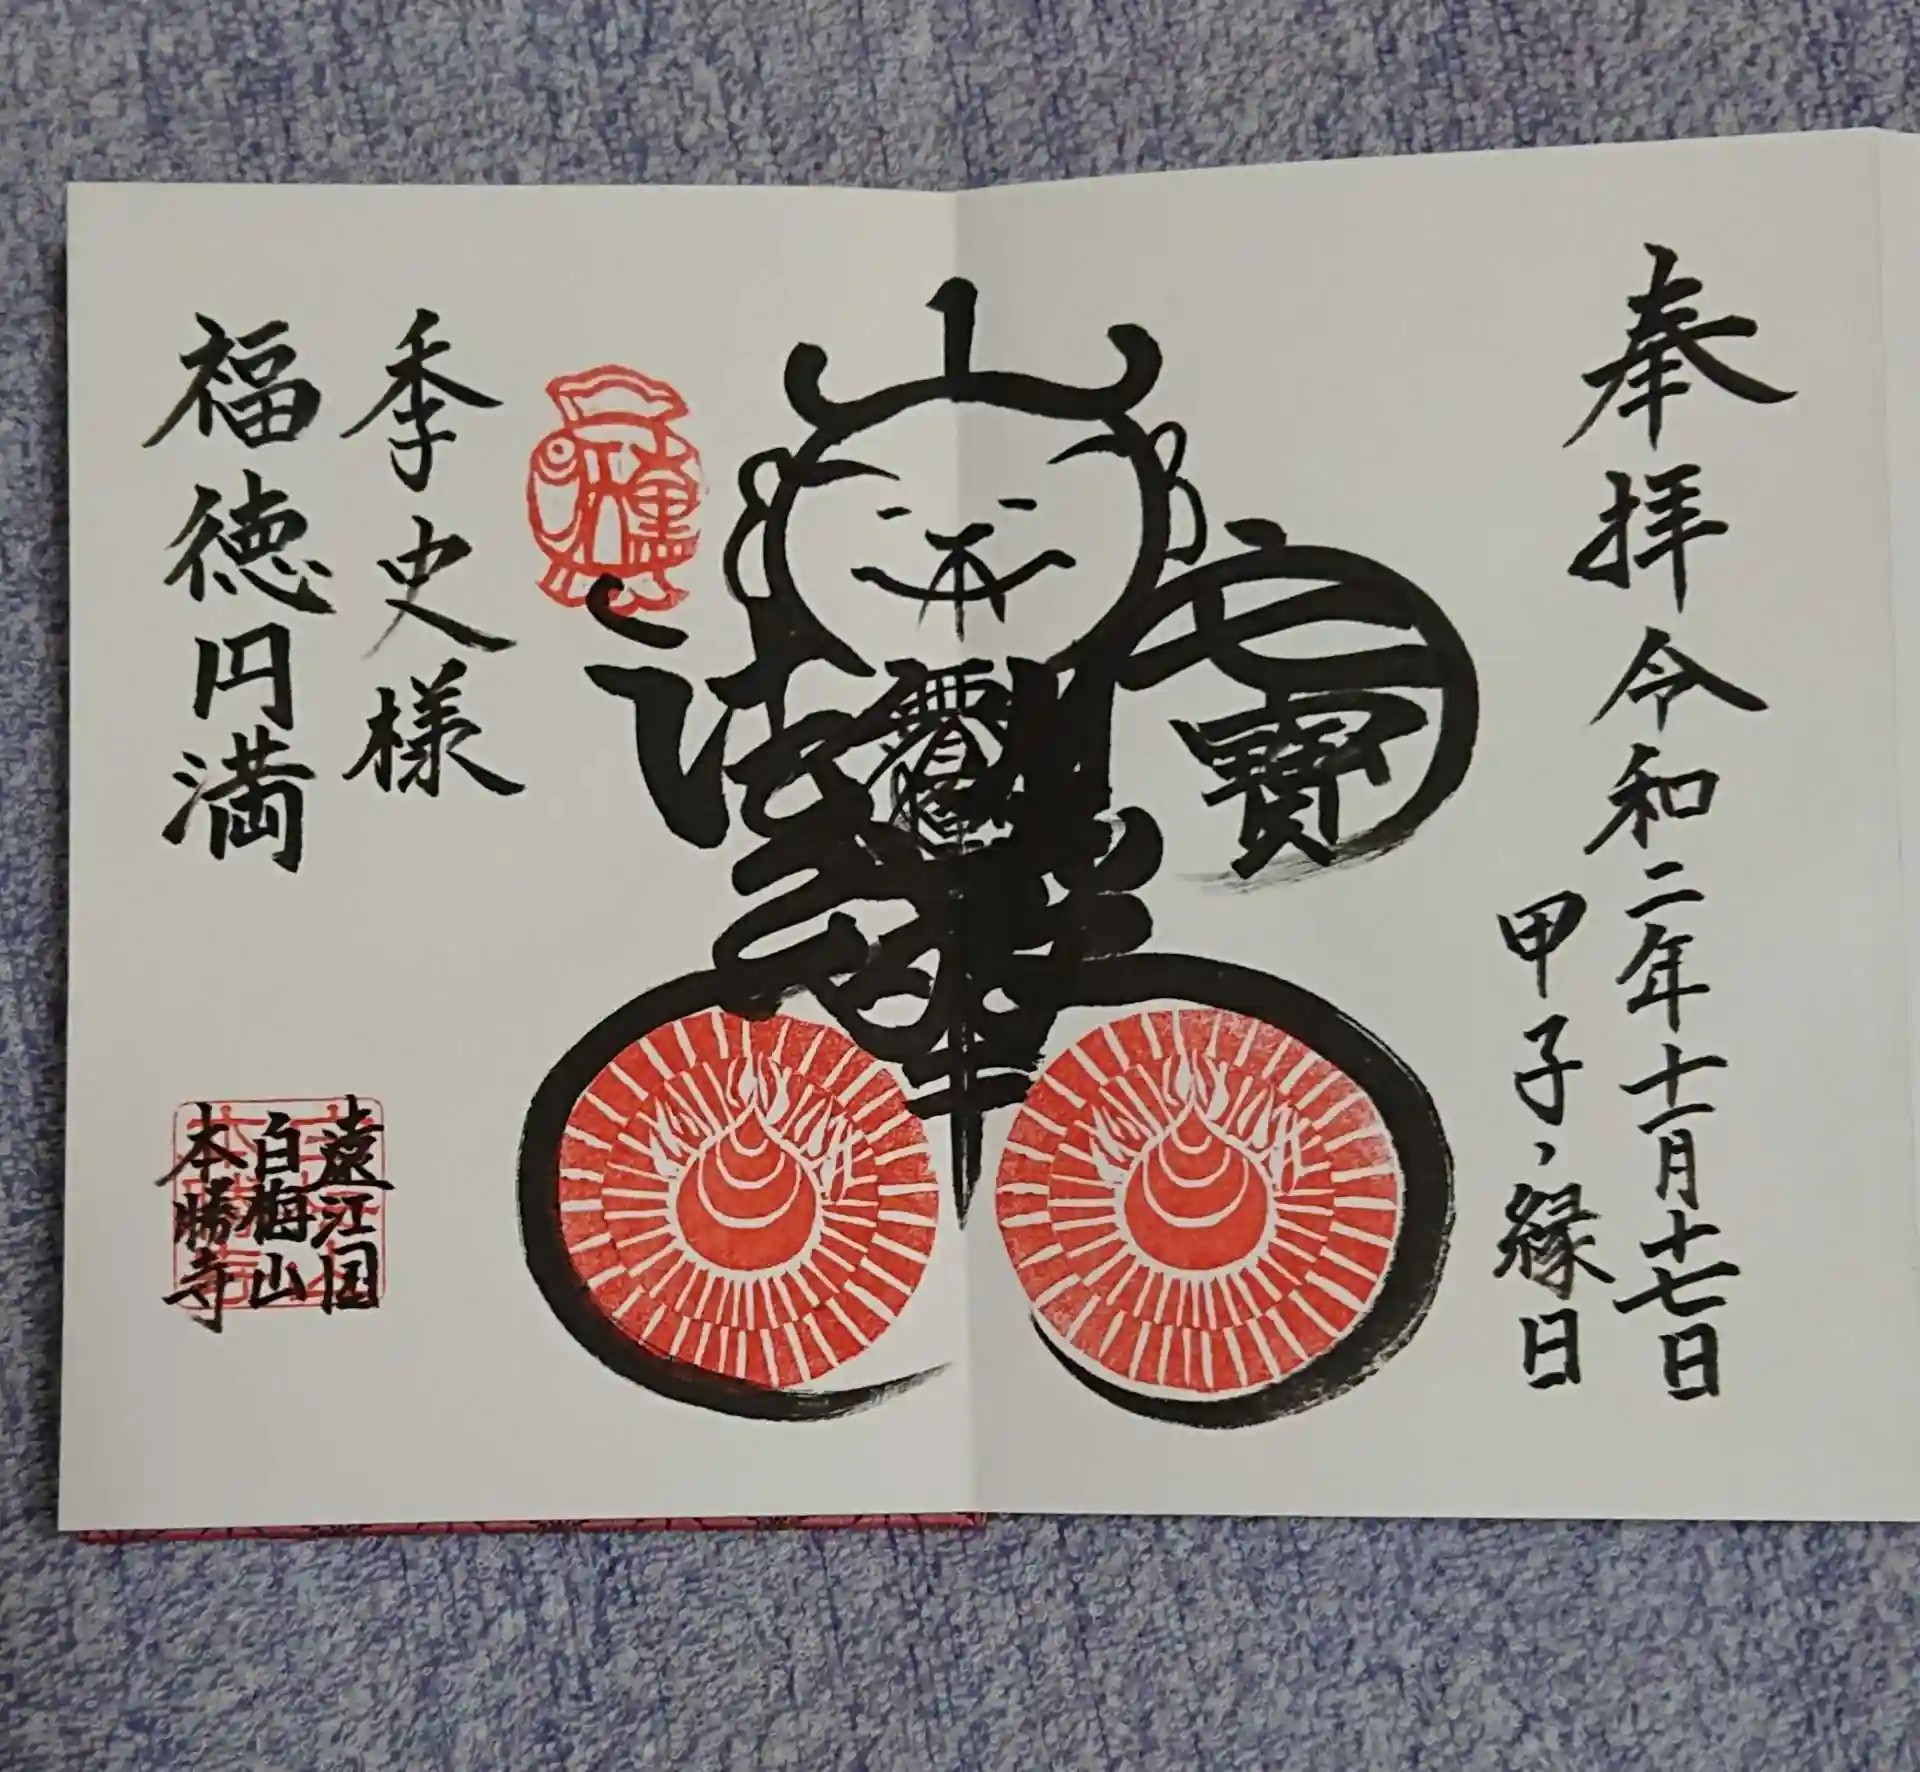 奉拝 令和二年十一月十七日
甲子、縁日
寶
季史様
福徳円満
遠江国
白梅山
本勝寺